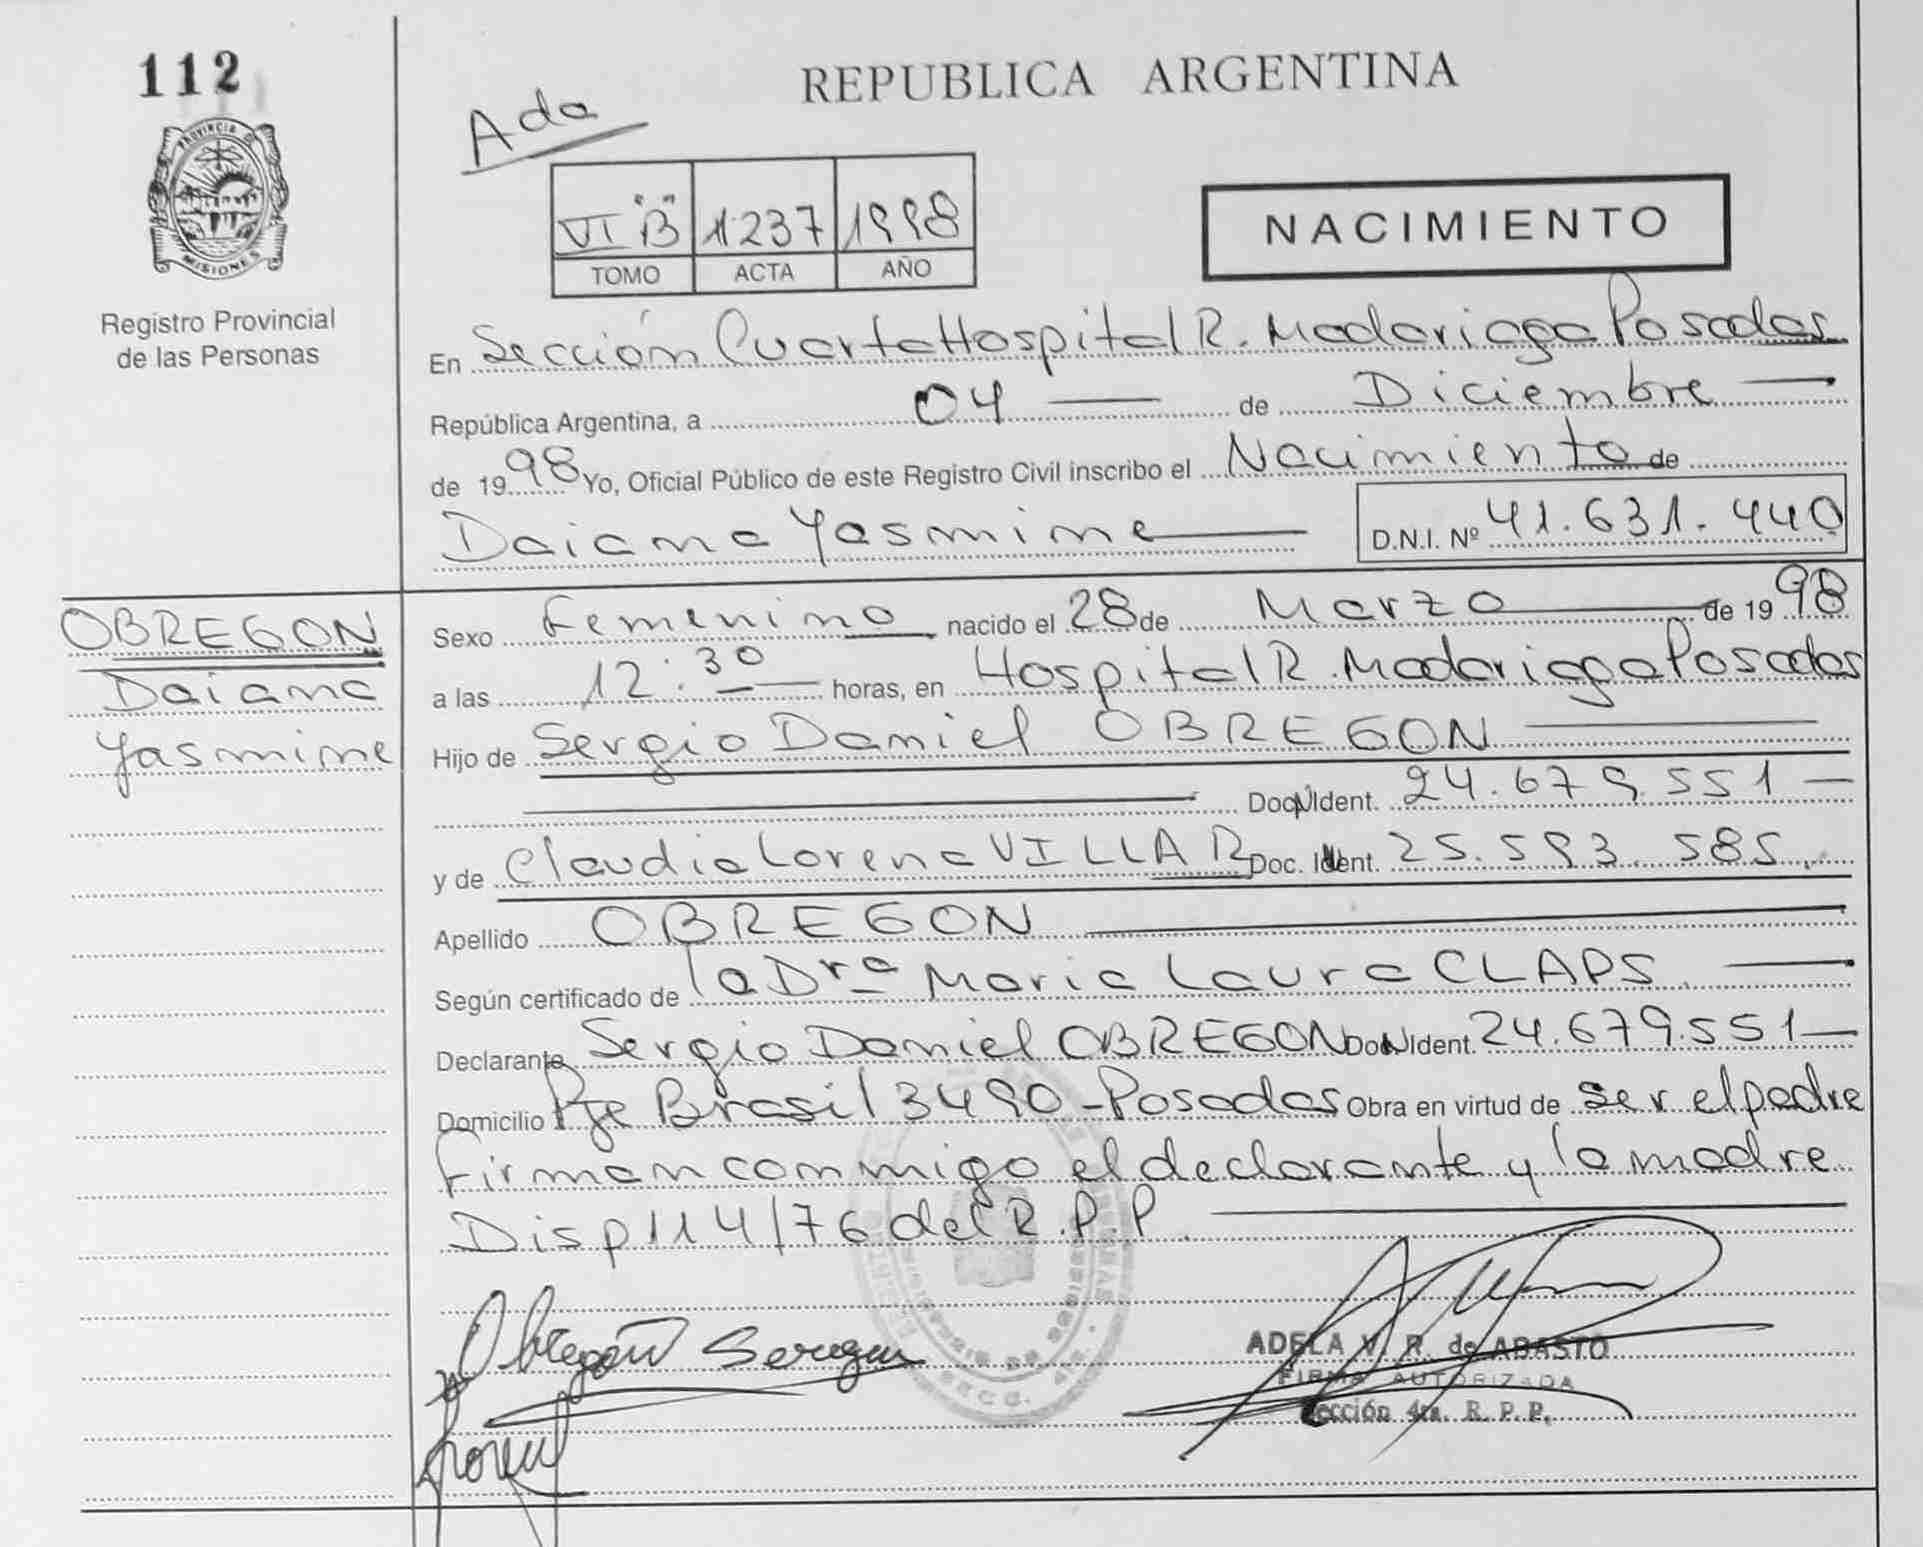 112
PROVINCIA DE
MISIONES
Registro Provincial
de las Personas
REPUBLICA ARGENTINA
Ada
VI "B" 1237 1998
TOMO ACTA AÑO
NACIMIENTO
En Sección Cuarta Hospital R. Madariaga Posadas
República Argentina, a 04 — de Diciembre —
de 1998 Yo, Oficial Público de este Registro Civil inscribo el Nacimiento de
Daiana Yasmine — D.N.I. Nº 41.631.440
OBREGON
Daiana
Yasmine
Sexo Femenino, nacido el 28 de Marzo — de 1998
a las 12:30 — horas, en Hospital R. Madariaga Posadas
Hijo de Sergio Daniel OBREGON —
— Doc. Ident. 24.679.551 —
y de Claudia Lorena VILLAR Doc. Ident. 25.593.585.
Apellido OBREGON —
Según certificado de la Dra Maria Laura CLAPS. —
Declarante Sergio Daniel OBREGON Doc. Ident. 24.679.551 —
Domicilio Pje Brasil 3490 - Posadas Obra en virtud de ser el padre
Firman conmigo el declarante y la madre
Disp 114/76 del R.P.P. —
Obregon Sergio
ADELA V. R. de ABASTO
FIRMA AUTORIZADA
Sección 4ta. R. P. P.